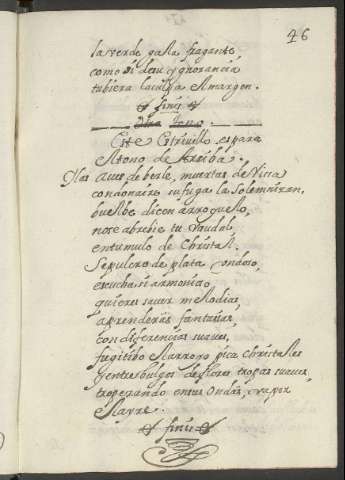 46
la verde galla fragante
como si de su ygnorancia
tubiera la culpa el margen.
finis
Otro tono.
Este Estrivillo es para
el tono de Arriba.
Las aues de berle, muertas de Risa
con donaire su fuga la solemnizan,
buelbe, dicen arroyuelo,
no se abrebie tu caudal,
en tumulo de Christal.
Sepulcro de plata ondoso,
escucha si armonia
quieres sauer melodias,
aprenderás fantasias
con diferencias suaues,
fugitibo el arroyo pica christales
y entre bulgos de flores tropas suaues
tropezando entre ondas,
el ayre.
finis